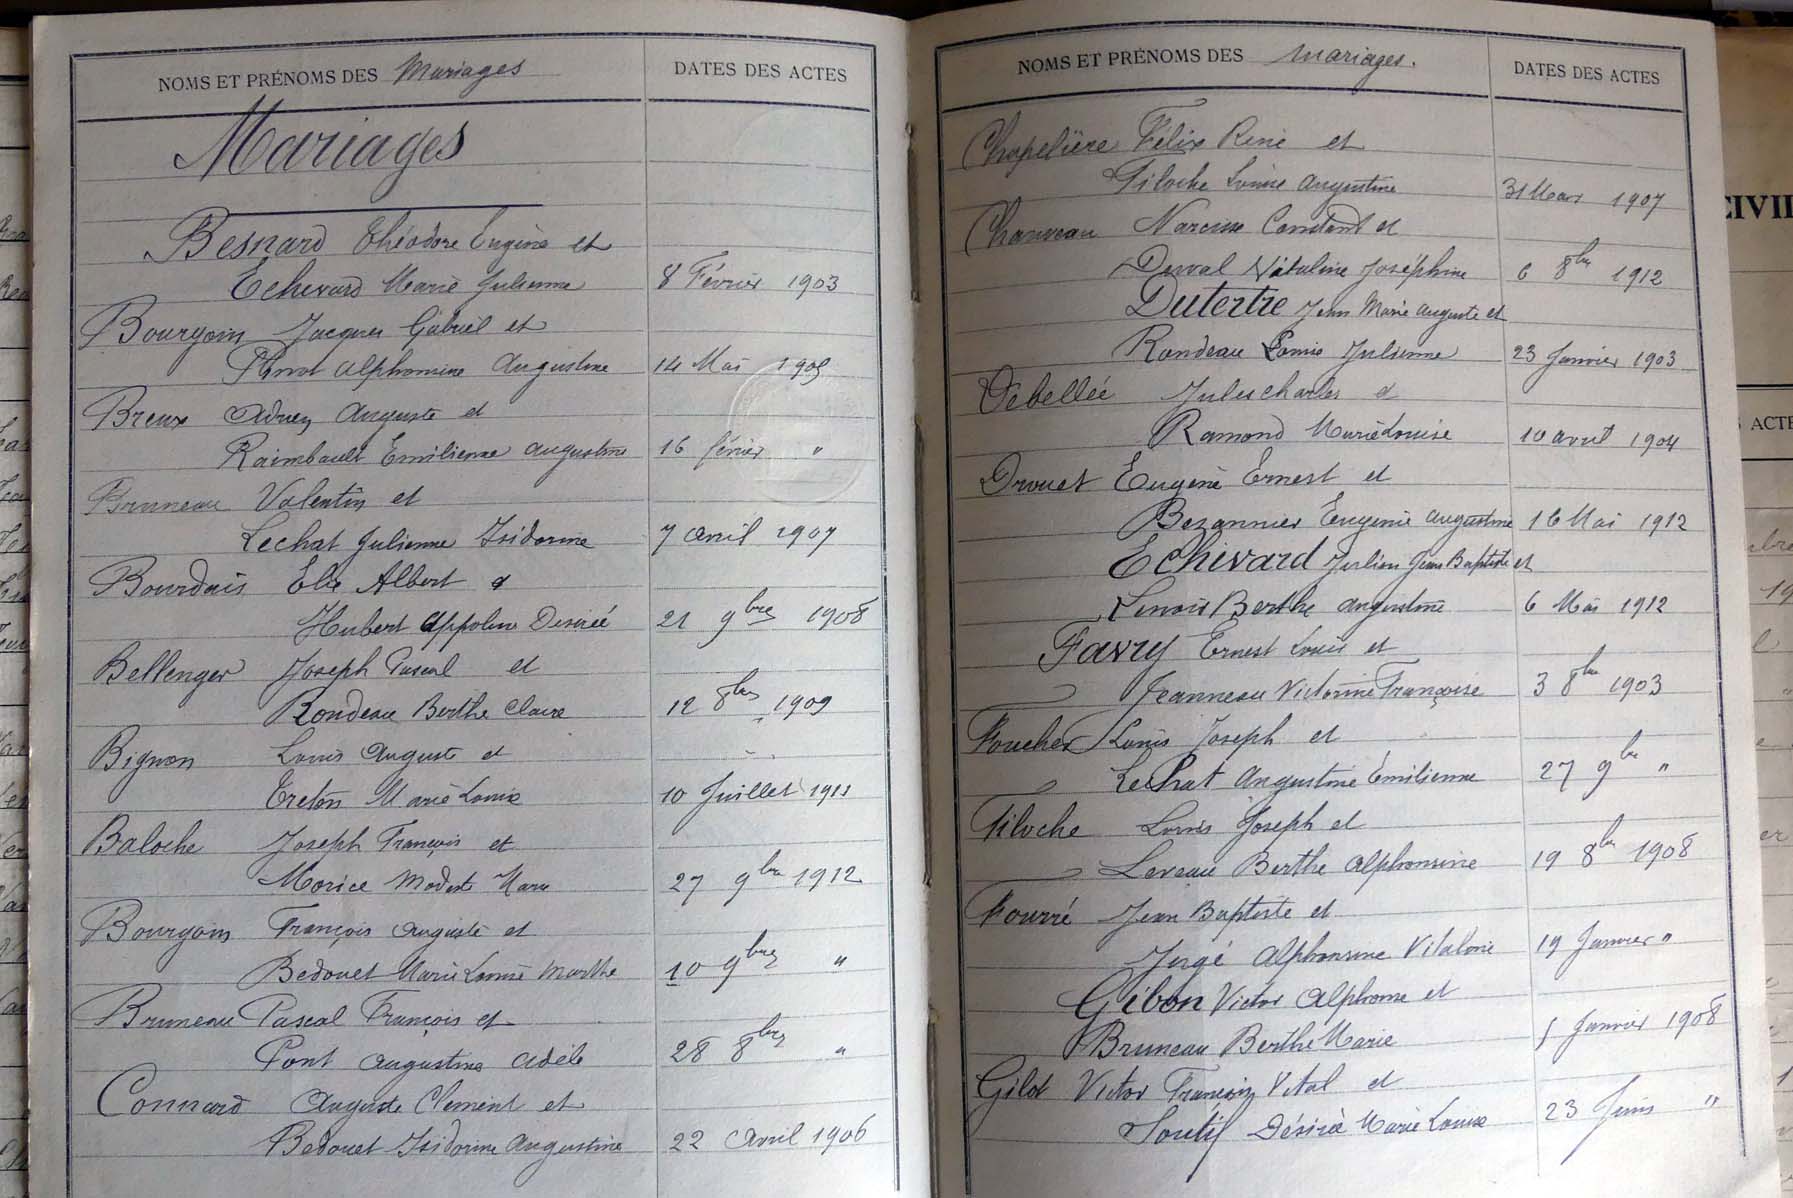 NOMS ET PRÉNOMS DES Mariages DATES DES ACTES
Mariages
Besnard Théodore Eugène et
Echevard Marie Julienne 8 Février 1903
Bourgoin Jacques Gabriel et
Pinot Alphonsine Augustine 14 Mai 1905
Breux Adrien Auguste et
Raimbault Emilienne Augustine 16 février "
Bruneau Valentin et
Lechat Julienne Isidorine 7 avril 1907
Bourdais Elie Albert et
Hubert Appoline Desirée 21 9bre 1908
Bellenger Joseph Pascal et
Rondeau Berthe Claire 12 8bre 1909
Bignon Louis Auguste et
Creton Marie Louise 10 Juillet 1911
Baloche Joseph François et
Morice Modeste Marie 27 9bre 1912
Bourgoin François Auguste et
Bedouet Marie Louise Marthe 10 9bre "
Bruneau Pascal François et
Pont Augustine Adèle 28 8bre "
Connard Auguste Clement et
Bedouet Isidorine Augustine 22 Avril 1906
NOMS ET PRÉNOMS DES Mariages. DATES DES ACTES
Chapelière Félix René et
Filoche Louise Augustine 31 Mars 1907
Chauveau Narcisse Constant et
Derval Vitaline Joséphine 6 8bre 1912
Dutertre Jean Marie Auguste et
Rondeau Louise Julienne 23 Janvier 1903
Débellée Jules Charles et
Ramond Marie Louise 10 avril 1904
Drouet Eugène Ernest et
Bezannier Eugenie Augustine 16 Mai 1912
Echivard Julien Jean Baptiste et
Lenoir Berthe Augustine 6 Mai 1912
Favry Ernest Louis et
Jeanneau Victorine Françoise 3 8bre 1903
Foucher Louis Joseph et
Lechat Augustine Emilienne 27 9bre "
Filoche Louis Joseph et
Leveau Berthe Alphonsine 19 8bre 1908
Fourré Jean Baptiste et
Jugé Alphonsine Vitaline 19 Janvier "
Gibon Victor Alphonse et
Bruneau Berthe Marie 5 Janvier 1908
Gilot Victor François Vital et
Soutif Désirée Marie Louise 23 Juin "
CIVIL
ACTE